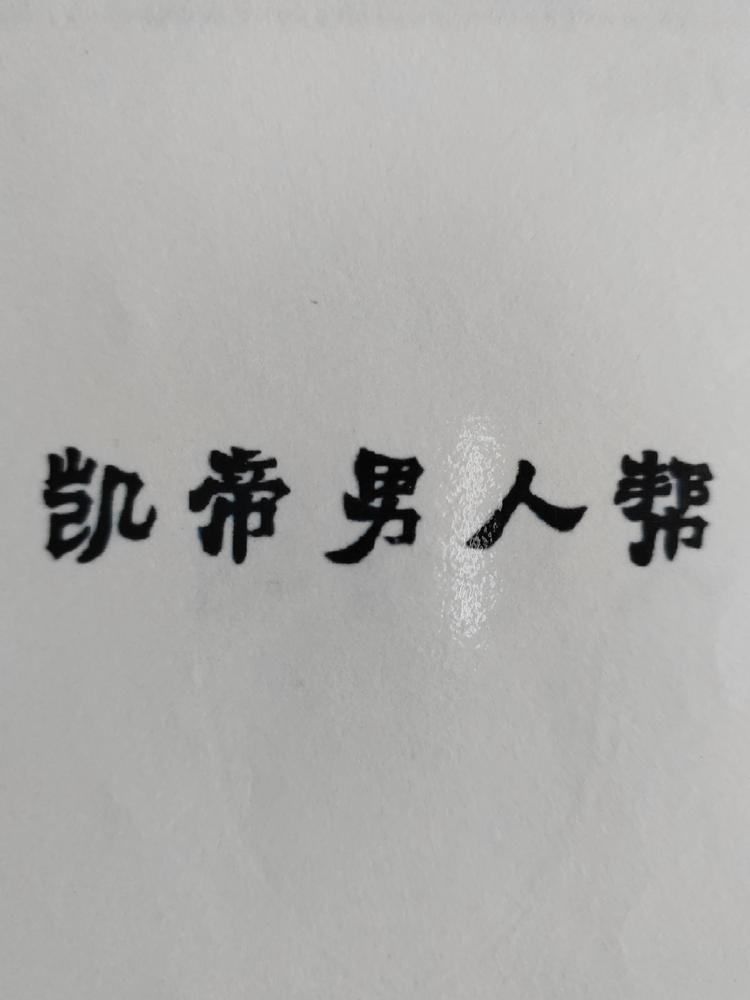 凯帝男人帮